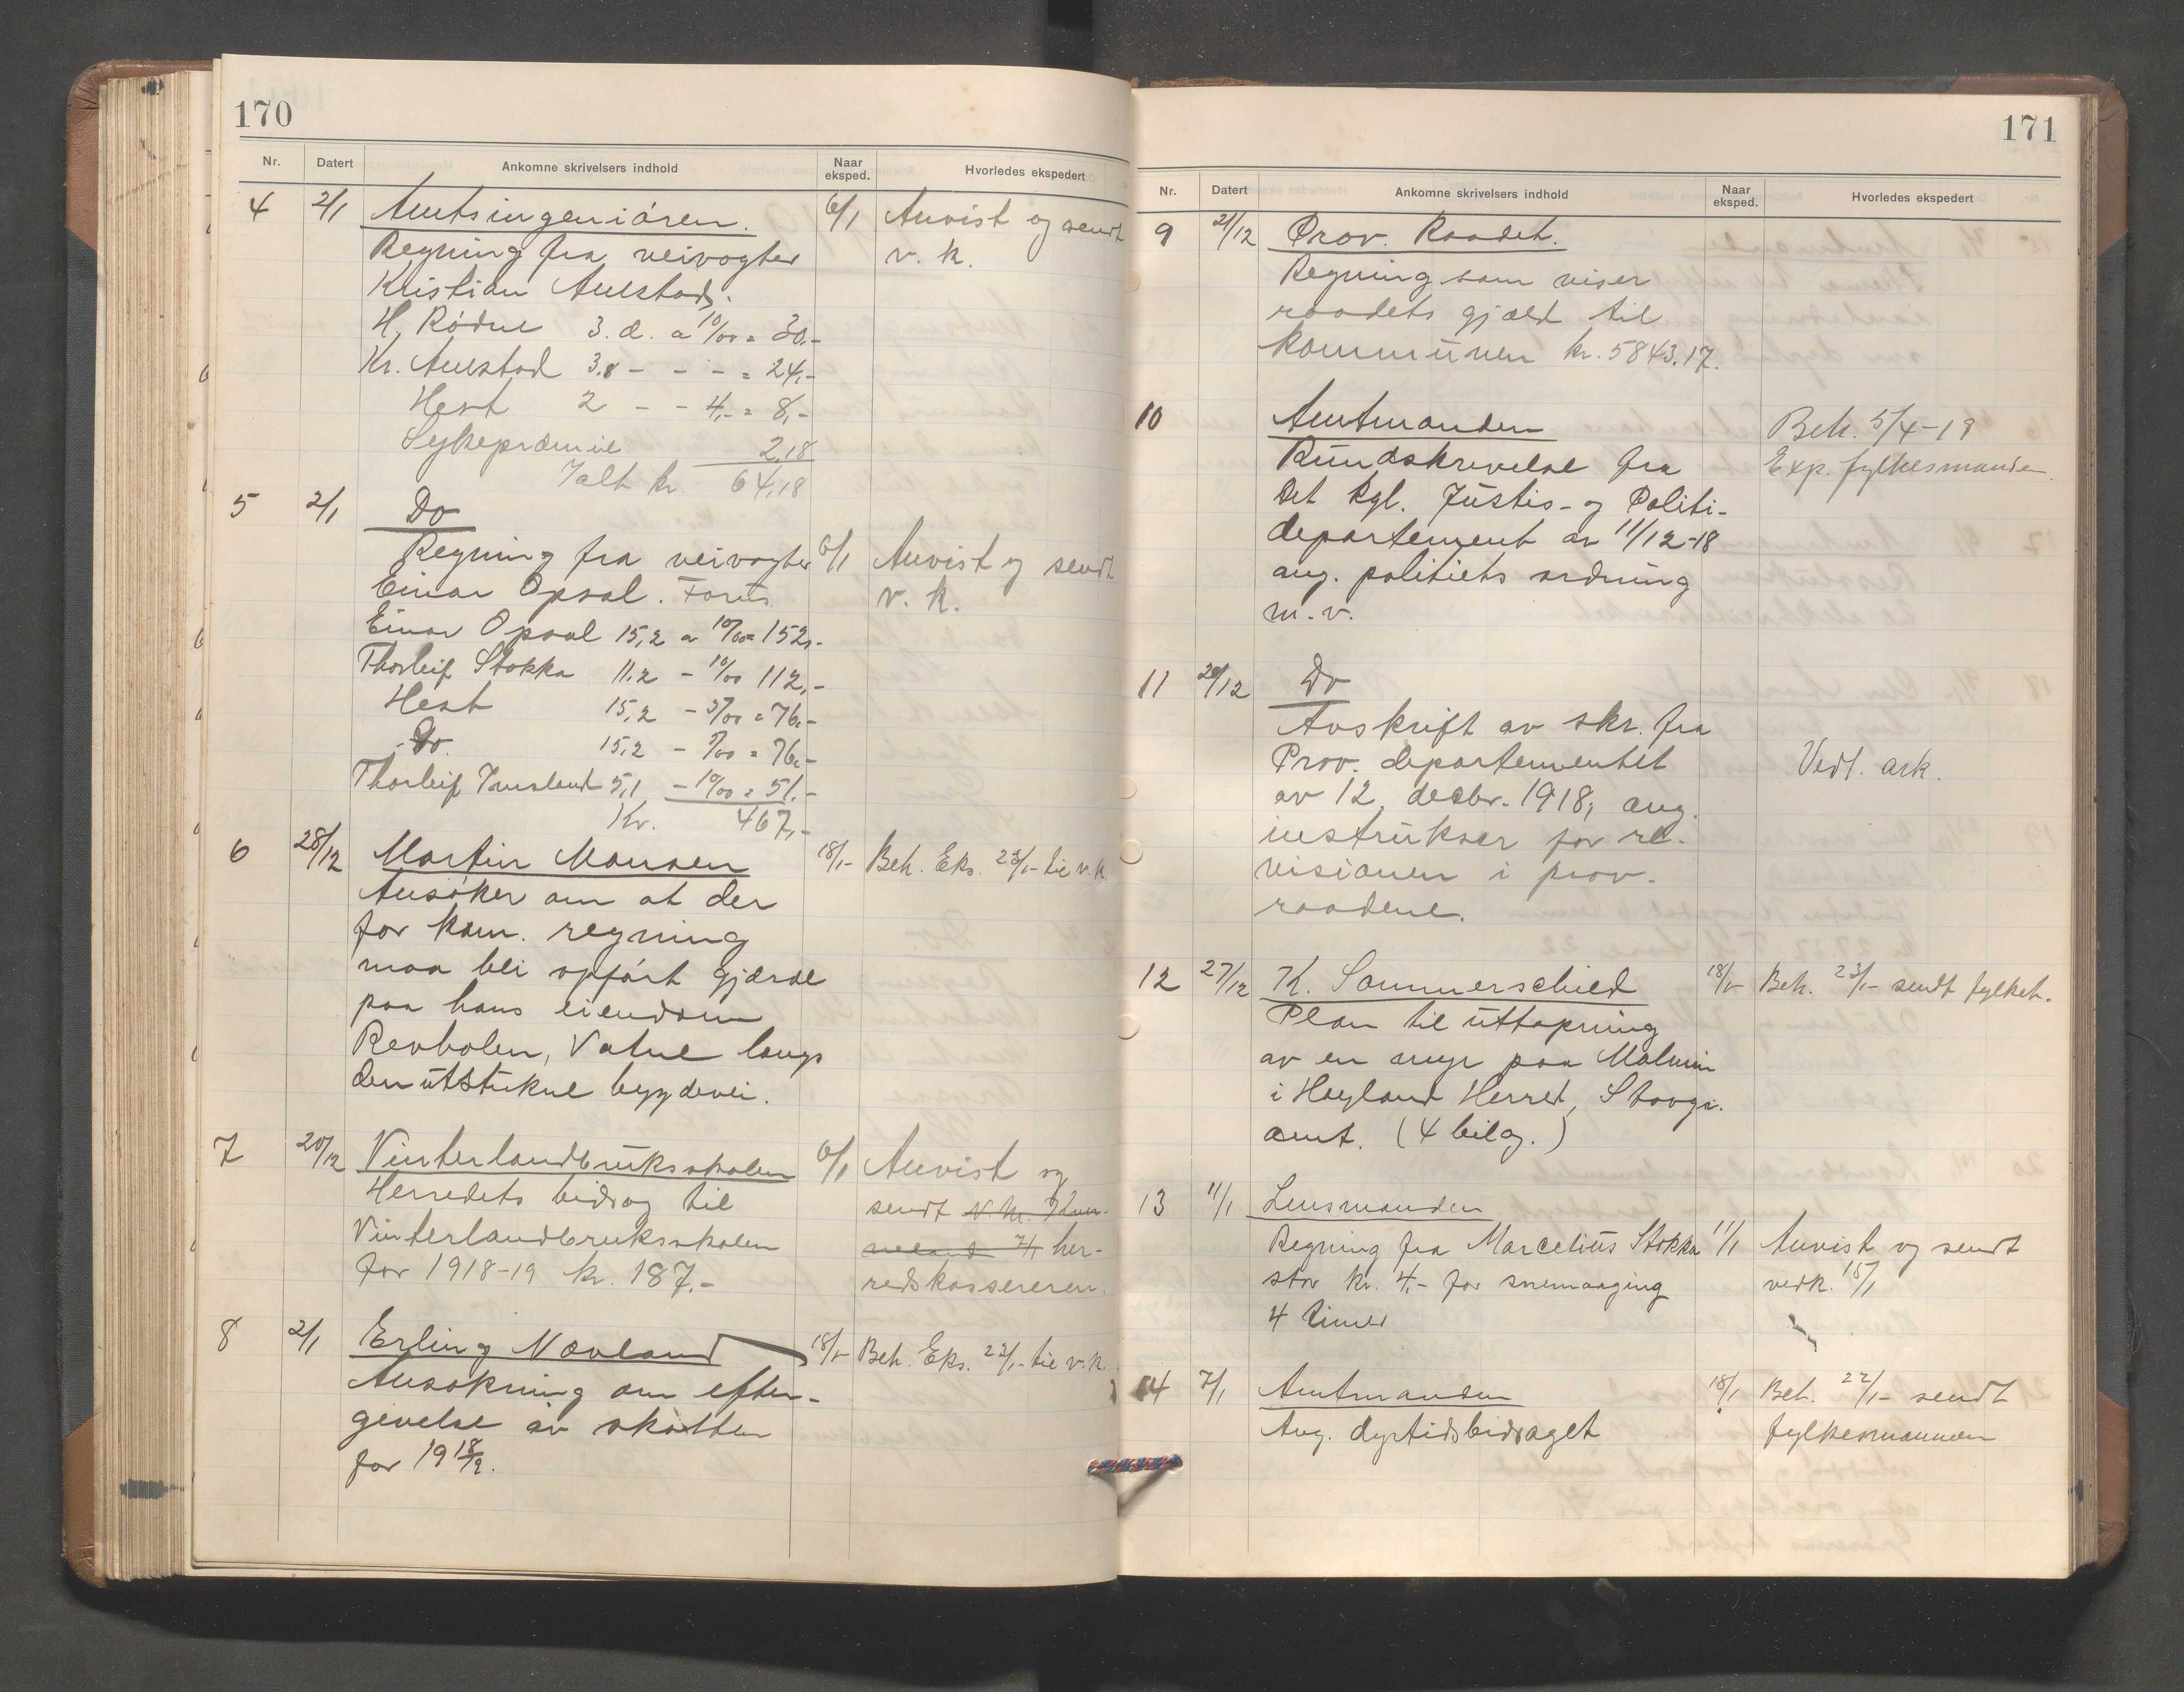 170
Nr. Datert Ankomne skrivelsers indhold Naar eksped. Hvorledes ekspedert
4 2/1 Amtsingeniøren. 6/1 Anvist og sendt
Regning fra veivogter v. k.
Kristian Aulstad.
H. Rødne 3. d. a 10/00 = 30,-
Kr. Aulstad 3. - - - = 24,-
Hest 2 - - 4,- = 8,-
Sykepræmie 2,18
Ialt kr. 64,18
5 2/1 Do
Regning fra veivogter 6/1 Anvist og sendt
Einar Opsal. Forus. v. k.
Einar Opsal 15,2 a 10/00 = 152,-
Thorleif Stokka 11.2 - 10/00 112,-
Hest 15,2 - 5/00 = 76,-
Do. 15,2 - 5/00 = 76,-
Thorleif Imsland 5,1 - 10/00 = 51,-
Kr. 467,-
6 28/12 Martin Monsen 18/1- Beh. Eks. 23/1- til v.k.
Ansøker om at der
for kom. regning
maa bli opført gjærde
paa hans eiendom
Revholen, Vatne langs
den utstukne bygdevei.
7 20/12 Vinterlandbruksskolen 6/1 Anvist og
Herredets bidrag til sendt
Vinterlandbruksskolen 7/1 her-
for 1918-19 kr. 187.- redskassereren.
8 2/1 Erling Nævland 18/1- Beh. Eks. 23/1- til v.k.
Ansøkning om efter-
givelse av skatten
for 1918/9.
171
Nr. Datert Ankomne skrivelsers indhold Naar eksped. Hvorledes ekspedert
9 21/12 Prov. Raadet.
Regning som viser
raadets gjæld til
kommunen kr. 5843.17.
10 Amtmanden Beh. 5/4-19
Rundskrivelse fra Exp. fylkesmanden
Det kgl. Justis- og Politi-
departement av 11/12-18
ang. politiets ordning
m.v.
11 20/12 Do
Avskrift av skr. fra
Prov. departementet Vedl. ark.
av 12. decbr. 1918, ang.
instrukser for re-
visionen i prov.
raadene.
12 27/12 K. Sommerschield 18/1- Beh. 23/1- sendt fylket.
Plan til uttapning
av en myr paa Malmin
i Høyland Herred, Stavgr.
amt. (4 bilag.)
13 11/1 Lensmanden
Regning fra Marcelius Stokka 11/1 Anvist og sendt
stor kr. 4,- for snemaaging vedk. 15/1
4 timer
14 7/1 Amtmanden 18/1 Beh. 22/1- sendt
Ang. dyrtidsbidraget fylkesmannen